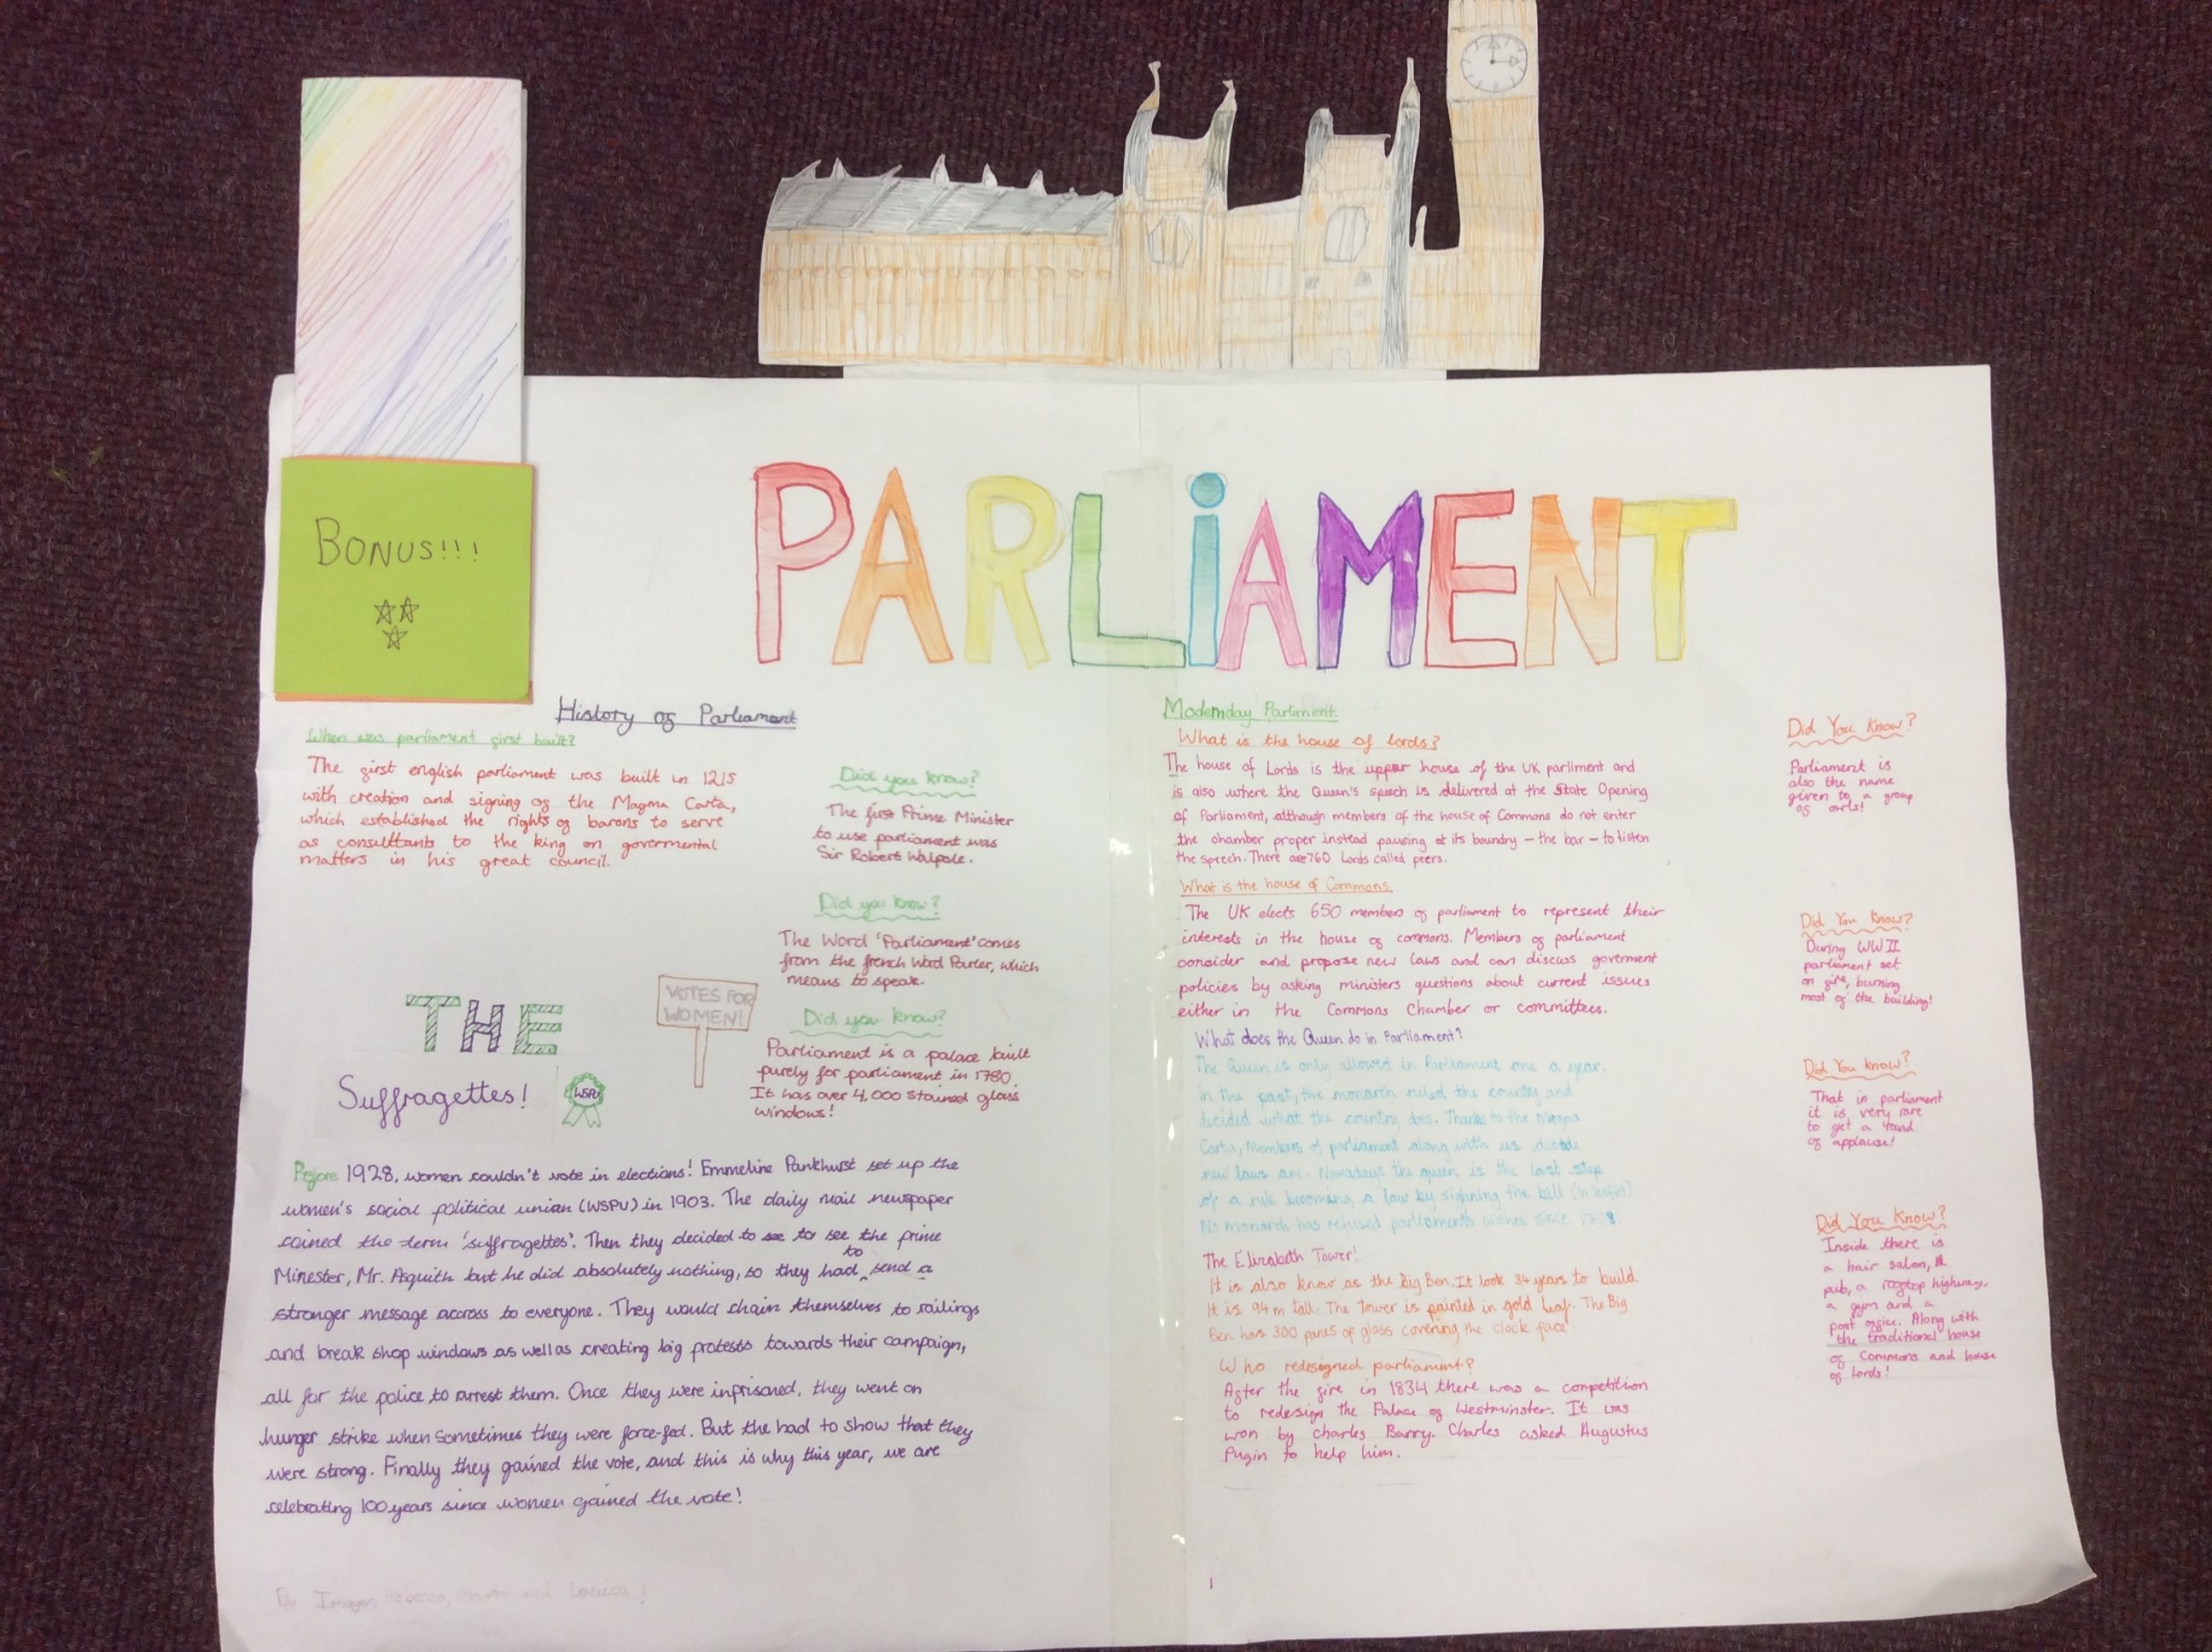 BONUS!!!
PARLiAMENT
History of Parliament
When was parliament first built?
The first english parliament was built in 1215
with creation and signing of the Magma Carta,
which established the rights of barons to serve
as consultants to the king on govermental
matters in his great council.
Did you know?
The first Prime Minister
to use parliament was
Sir Robert Walpole.
Did you know?
The Word 'Parliament' comes
from the french Word Parler, which
means to speak.
VOTES FOR
WOMEN!
Did you know?
Parliament is a palace built
purely for parliament in 1780.
It has over 4,000 stained glass
windows!
THE
Suffragettes!
WSPU
Before 1928, women couldn't vote in elections! Emmeline Pankhurst set up the
women's social political union (WSPU) in 1903. The daily mail newspaper
coined the term 'suffragettes'. Then they decided to see to see the prime
Minester, Mr. Asquith but he did absolutely nothing, so they had to send a
stronger message accross to everyone. They would chain themselves to railings
and break shop windows as well as creating big protests towards their campaign,
all for the police to arrest them. Once they were inprisoned, they went on
hunger strike when sometimes they were force-fed. But the had to show that they
were strong. Finally they gained the vote, and this is why this year, we are
celebrating 100 years since women gained the vote!
By Imogen, Rebecca, and Louisa!
Modernday Parliment.
What is the house of lords?
The house of Lords is the upper house of the UK parliment and
is also where the Queen's speech is delivered at the State Opening
of Parliament, although members of the house of Commons do not enter
the chamber proper instead pausing at its boundry - the bar - to listen
the speech. There are 760 Lords called peers.
What is the house of Commons.
The UK elects 650 members of parliament to represent their
interests in the house of commons. Members of parliament
consider and propose new laws and can discuss goverment
policies by asking ministers questions about current issues
either in the Commons Chamber or committees.
What does the Queen do in Parliament?
The Queen is only allowed in Parliament one a year.
In the past, the monarch ruled the country and
decided what the country does. Thanks to the Magna
Carta, Members of parliament along with us decide
new laws are. Nowadays the queen is the last step
of a rule becoming a law by sighning the bill
No monarch has refused parliaments wishes since 1708.
The Elizabeth Tower!
It is also know as the Big Ben. It took 34 years to build.
It is 94m tall. The tower is painted in gold leaf. The Big
Ben has 300 panes of glass covering the clock face
Who redesigned parliament?
After the fire in 1834 there was a competition
to redesign the Palace of Westminster. It was
won by charles Barry. Charles asked Augustus
Pugin to help him.
Did You Know?
Parliament is
also the name
given to a group
of owls!
Did You Know?
During WWII
parliament set
on fire, burning
most of the building!
Did You Know?
That in parliament
it is very rare
to get a round
of applause!
Did You Know?
Inside there is
a hair salon, a
pub, a rooftop highway,
a gym and a
post office. Along with
the traditional house
of Commons and house
of Lords!